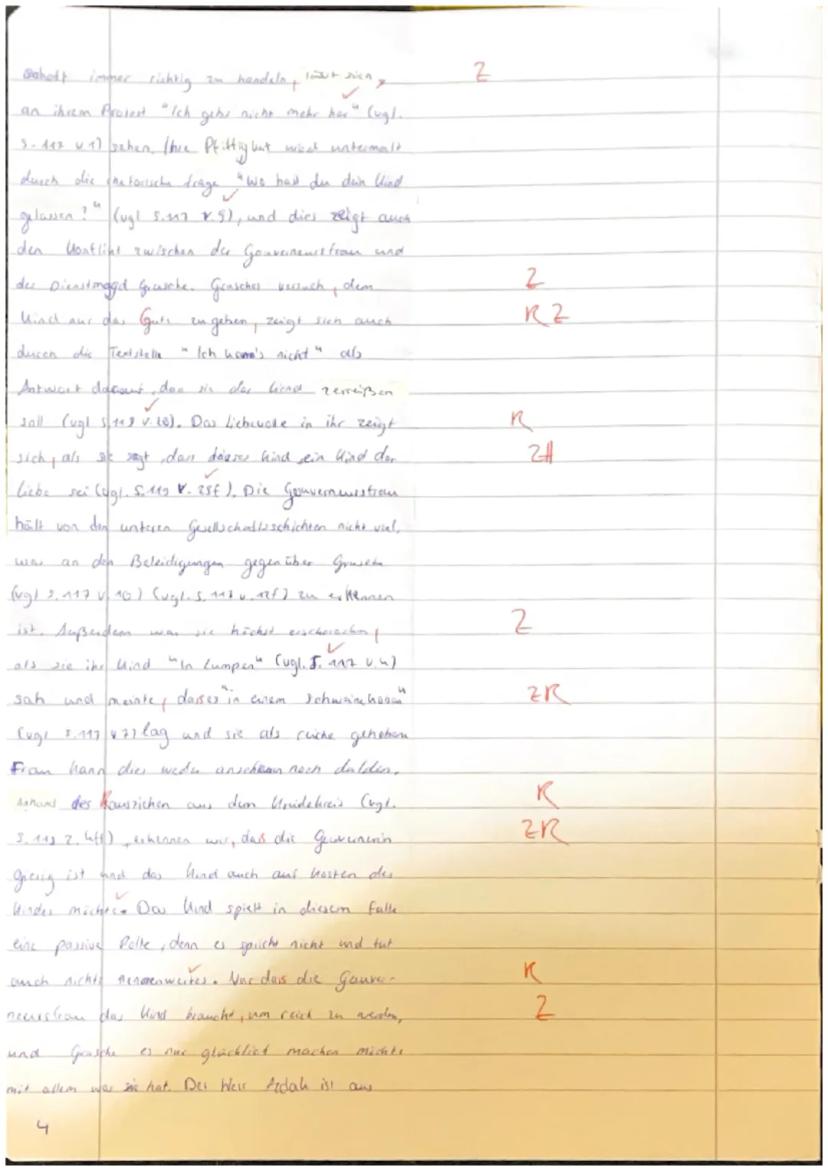 immer richtig zu handeln, lässt sich Z
an ihrem Protest "Ich gehe nicht mehr her" (vgl.
S. 117 V. 1) sehen. Ihre wird untermalt
durch die rhetorische Frage "Wo hast du dein Kind
gelassen?" (vgl S. 117 V. 5), und dies zeigt auch
den Konflikt zwischen der Gouverneursfrau und
der Dienstmagd Grusche. Grusches Versuch, dem Z
Kind nur das Gute zu geben, zeigt sich auch R Z
durch die Textstelle "Ich kann's nicht" als
Antwort darauf, das sie das Kind zerreißen
soll (vgl S. 119 V. 20). Das Liebevolle in ihr zeigt R
sich, als sie sagt, dass dieses Kind ein Kind der ZH
Liebe sei (vgl. S. 119 V. 25f). Die Gouverneursfrau
hält von den unteren Gesellschaftsschichten nicht viel,
was an den Beleidigungen gegenüber Grusche
(vgl S. 117 V. 10) (vgl. S. 117 V. 12f) zu erkennen
ist. Außerdem war sie höchst erschrocken, Z
als sie ihr Kind "In Lumpen" (vgl. S. 117 V. 4)
sah und meinte, dass es "in einem Schweinekoben" ZR
(vgl S. 117 V. 7) lag und sie als reiche gehobene
Frau kann dies weder anschauen noch dulden.
Anhand des Rausziehen aus dem Kreidekreis (vgl. R
S. 119 Z. 4ff), erkennen wir, daß die Gouvernerin ZR
gierig ist und das Kind auch auf Kosten des
Kindes möchte. Das Kind spielt in diesem Falle
eine passive Rolle, denn es spricht nicht und tut
auch nichts nennenwertes. Nur dass die Gouver- R
neursfrau das Kind braucht, um reich zu werden, Z
und Grusche es nur glücklich machen möchte
mit allem was sie hat. Der ist aus
4